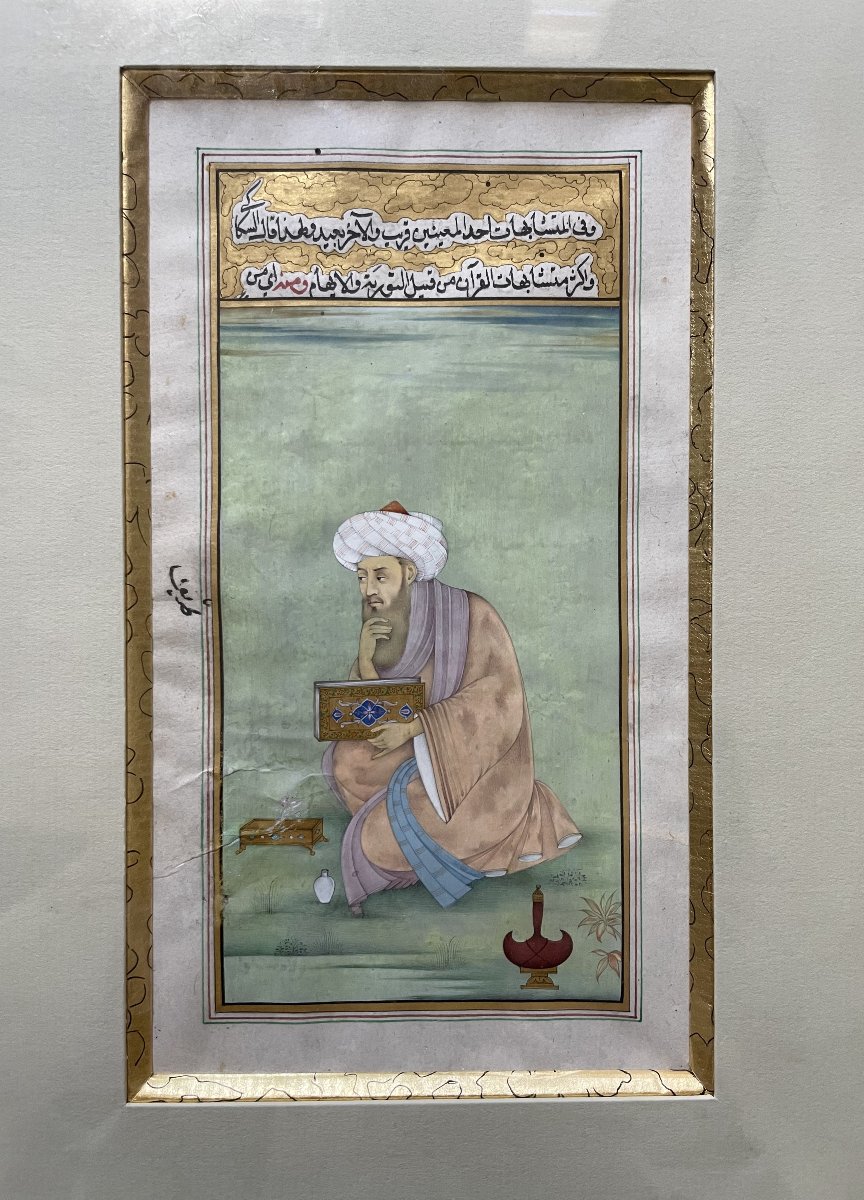 وفى المتشابهات احد المعنيين قريب والآخر بعيد ولهذا قال السكاكى
واكثر متشابهات القرآن من قبيل التورية والايهام ومنه اي من